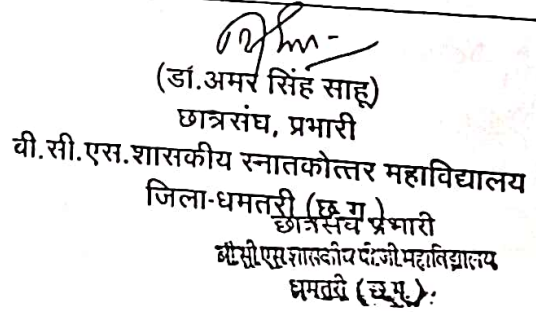 (डॉ.अमर सिंह साहू)
छात्रसंघ, प्रभारी
वी.सी.एस.शासकीय स्नातकोत्तर महाविद्यालय
जिला-धमतरी (छ.ग.)
छात्रसंघ प्रभारी
बी.सी.एस शासकीय पी.जी.महाविद्यालय
धमतरी (छ.ग.)